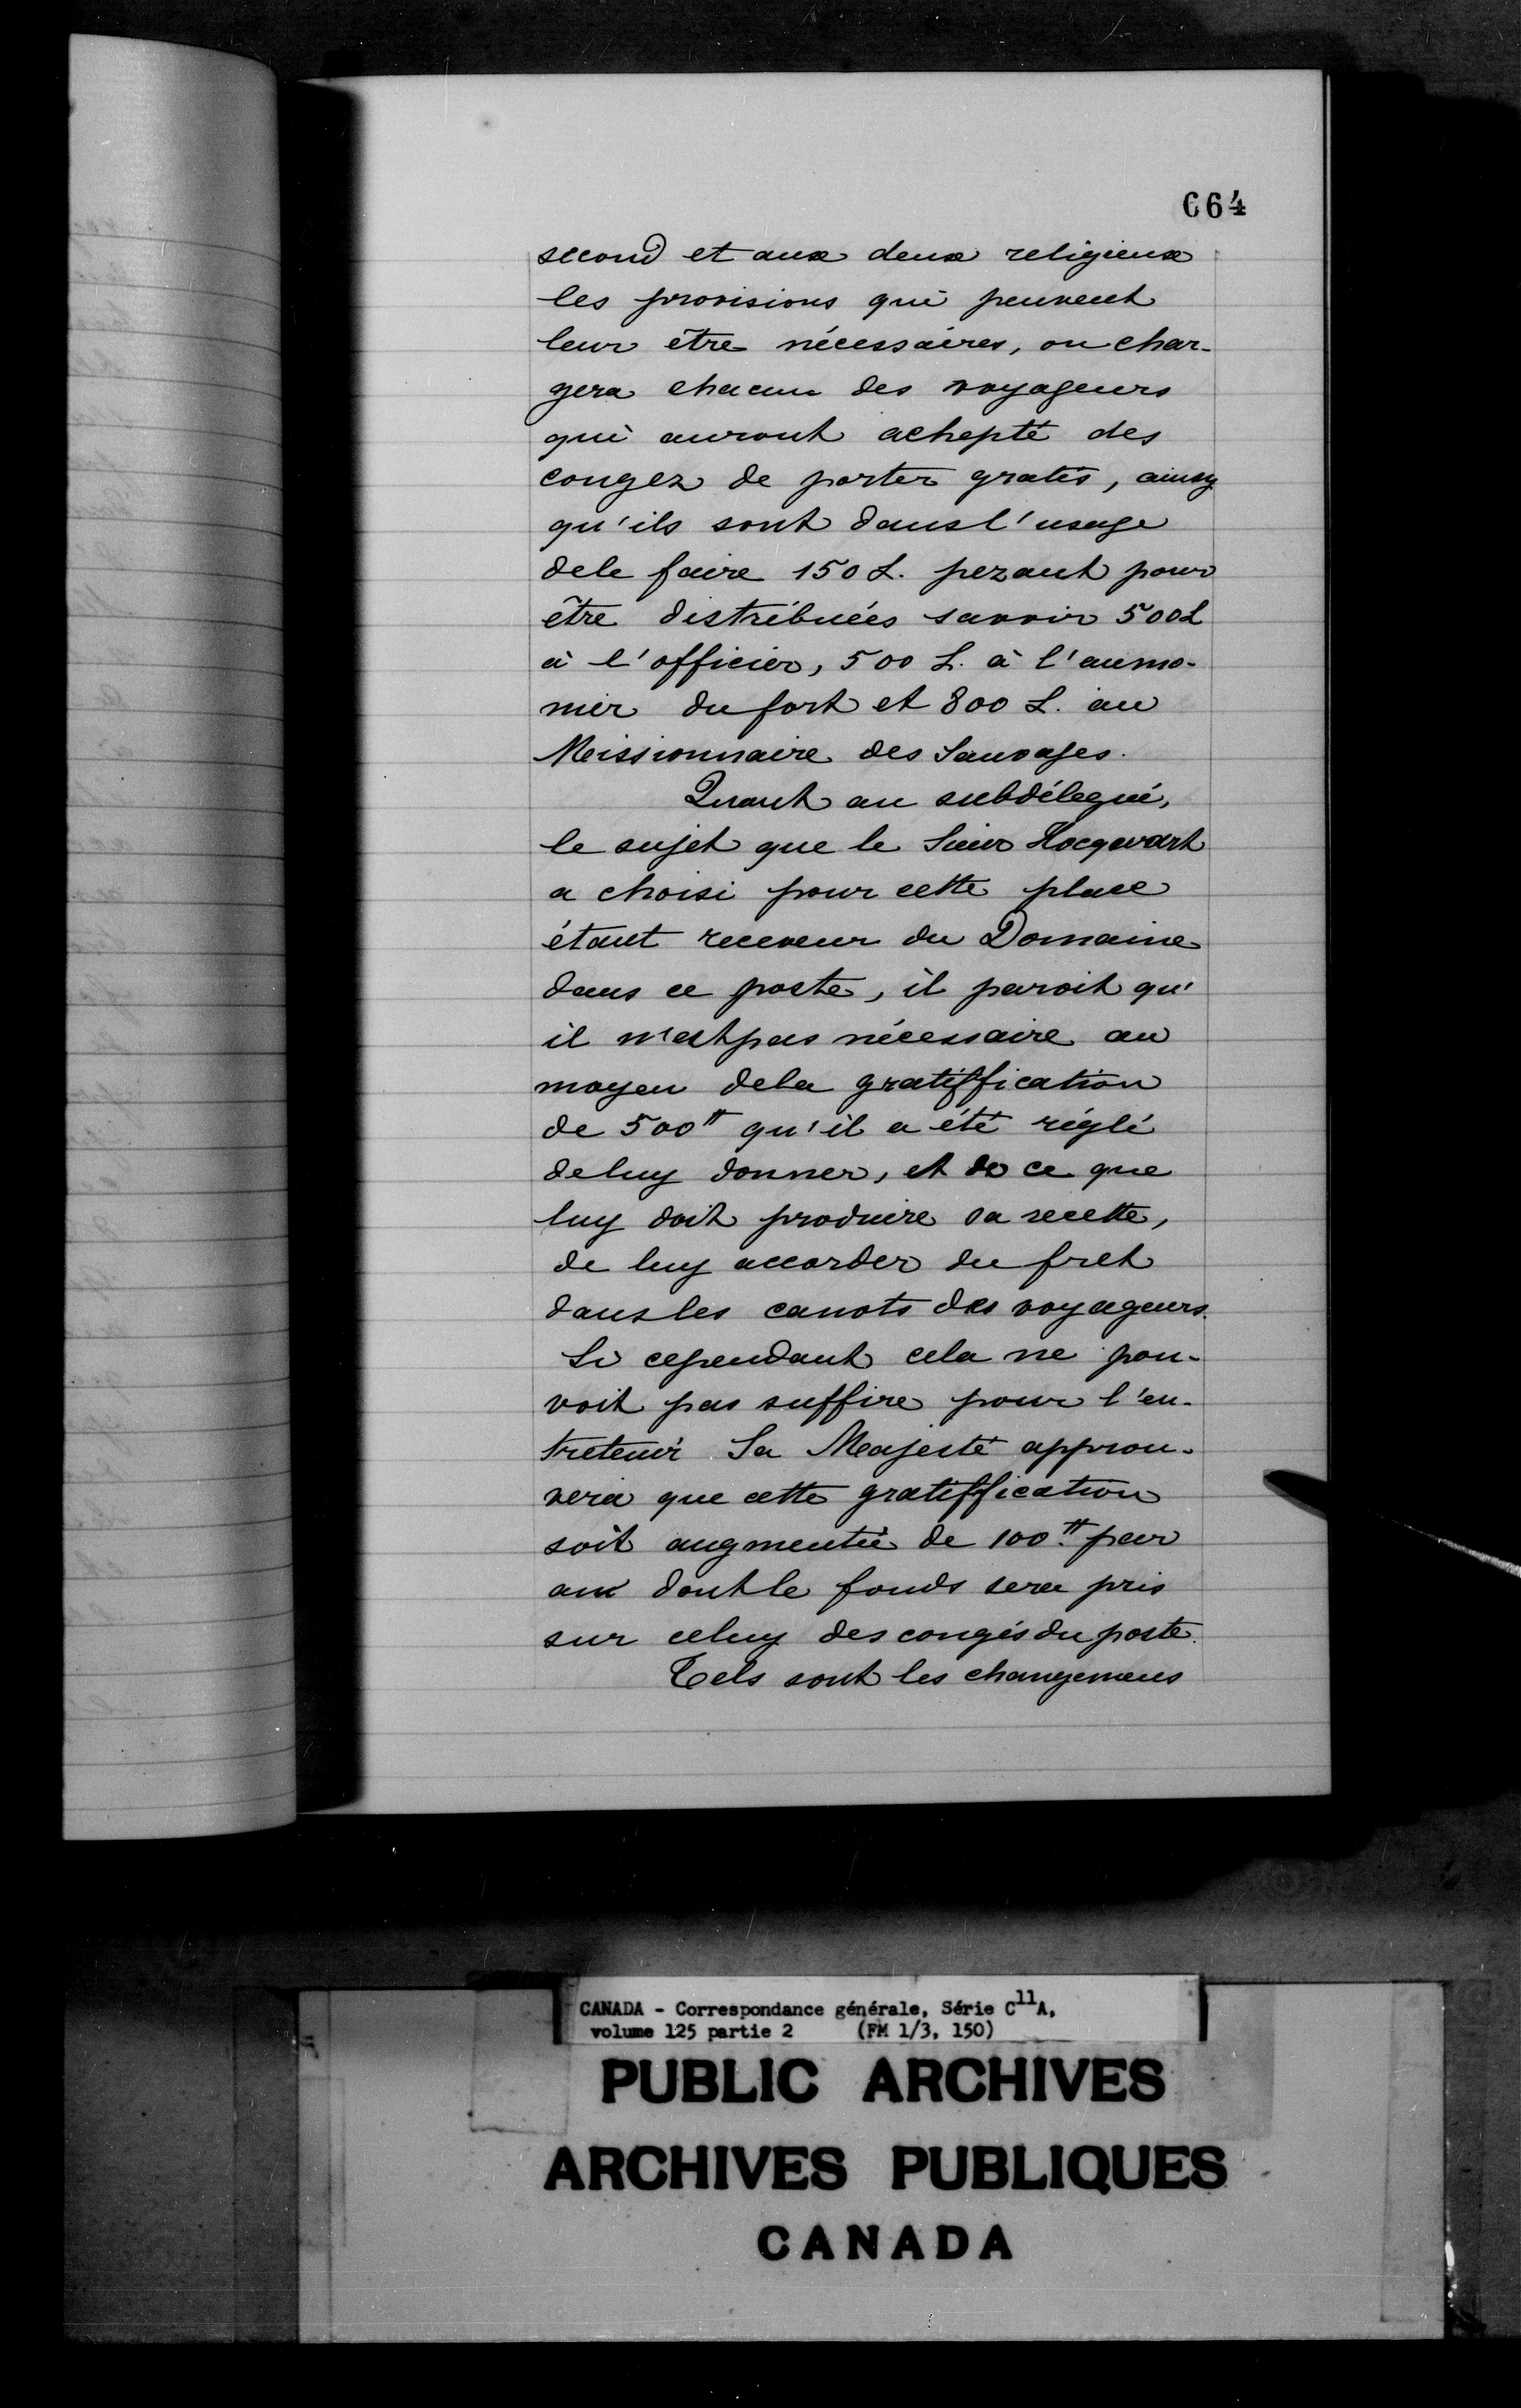 664
second et aux deux religieux
les provisions qui peuvent
leur être nécessaires, on char-
gera chacun des voyageurs
qui auront achepté des
congez de porter gratis, ainsy
qu'ils sont dans l'usage
dele faire 150 L. pezant pour
être distribuées savoir 500 L
à l'officier, 500 L. à l'aumo-
nier du fort et 800 L. au
Missionnaire des Sauvages.
Quant au subdélegué,
le sujet que le Sieur Hocquart
a choisi pour cette place
étant receveur du Domaine
dans ce poste, il paroit qu'
il n'est pas nécessaire au
moyen dela gratiffication
de 500# qu'il a été réglé
deluy donner, et de ce que
luy doit produire sa recette,
de luy accorder du fret
dans les canots des voyageurs.
Si cependant cela ne pou-
voit pas suffire pour l'en-
tretenir Sa Majesté approu-
vera que cette gratiffication
soit augmentée de 100.# par
an dont le fonds sera pris
sur celuy des congés du poste.
Tels sont les changemens
CANADA - Correspondance générale, Série C11A,
volume 125 partie 2 (FM 1/3, 150)
PUBLIC ARCHIVES
ARCHIVES PUBLIQUES
CANADA